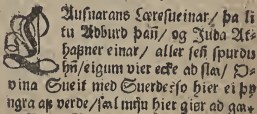 LAusnarans Læresueinar/ þa li
tu Adburd þañ/ og Juda At-
haffner einar/ aller señ spurdu
hñ/eigum vier ecke ad sla/ O-
vina Sueit med Suerde:so hier ei þy
ngra af verde/sæl mijn hiet gier ad gæ-